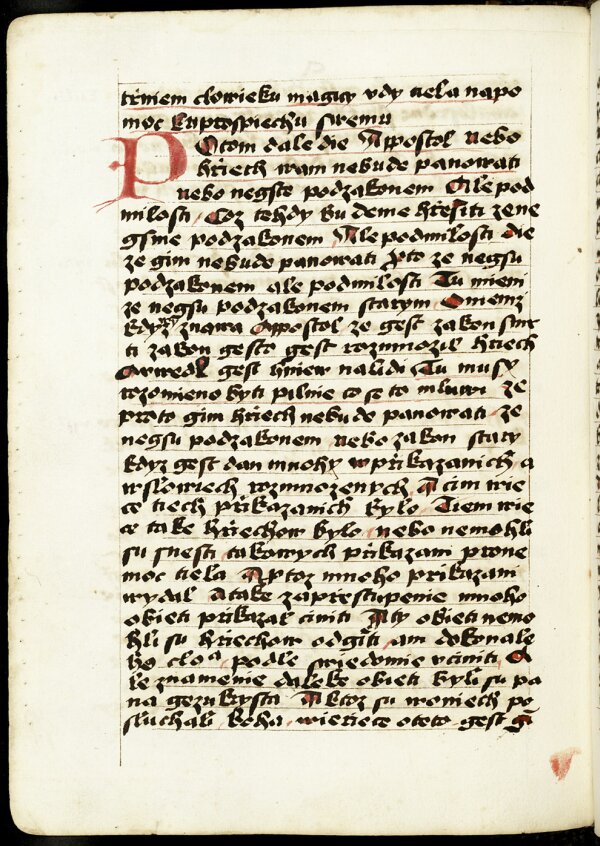 trniem cłowieku magicy vdy tiela napo
moc kuprospiechu swemu
Potom dale die Appostol nebo
hřiech wam nebude panowati
nebo negste podzakonem Ale pod
milosti Coz tehdy budeme hřessiti zene
gsme podzakonem Ale podmilosti die
ze gim nebude panowati Pto ze negsu
podzakonem ale podmilosti Tu mieni
ze negsu podzakonem starym Oniemz
kdyz znawa Appostol ze gest zakon smr
ti zakon gesto gest rozmnozil hřiech
Anwedl gest hniew nalidi Tu mus
rozomieno byti pilnie co se to mluwi ze
proto gim hřiech nebude panowati ze
negsu podzakonem nebo zakon stary
kdyz gest dan mnohy wprikazanich a
wslowiech rozmnozenych A cim wie
ce tiech prikazanich bylo Tiem wie
ce take hřiechow bylo nebo nemohli
su snesti takowych prikazani prone
moc tiela A ptoz mnoho prikazani
wydal A take zaprestupenie mnoho
obieti prikazal ciniti A ty obieti nemo
hli su hriechow odgiti am dokonale
ho clo podle swiedomie vciniti A
le znamenie daleke obieti byli su pa
na gezukrysta A ktoz su woniech po
sluchali boha wierziece ototo gest gi